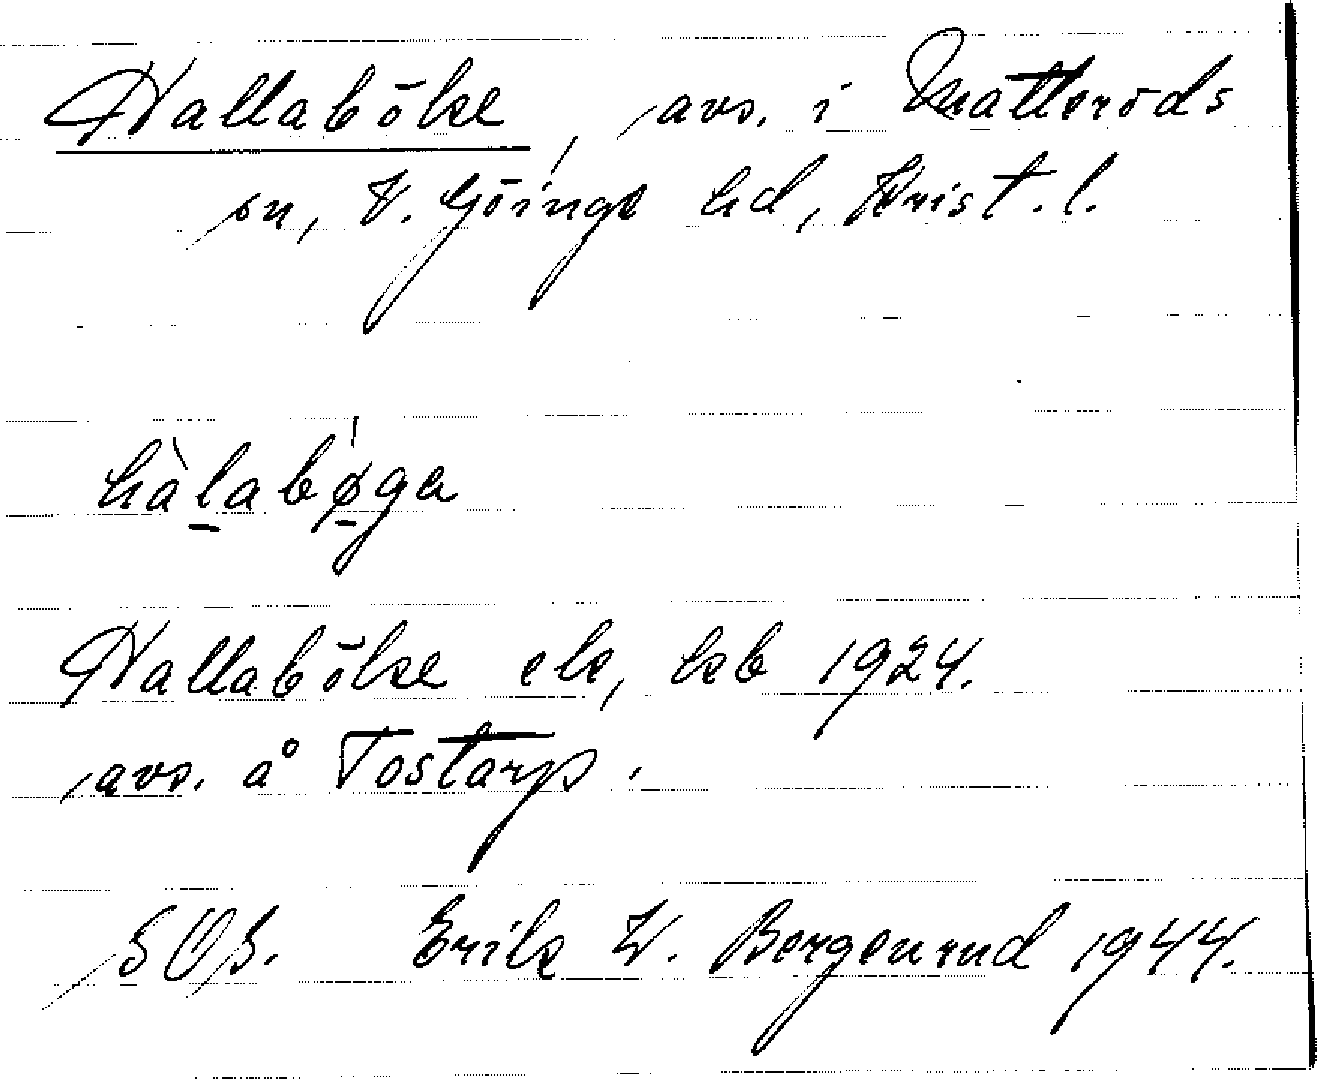 Hallaböke, avs. i Matteröds
sn, V. Göinge hd, Krist. l.
hàlabø̀ga
Hallaböke ek, hsb 1924.
avs. å Tostarp.
SOS. Erik W. Bergenrud 1944.